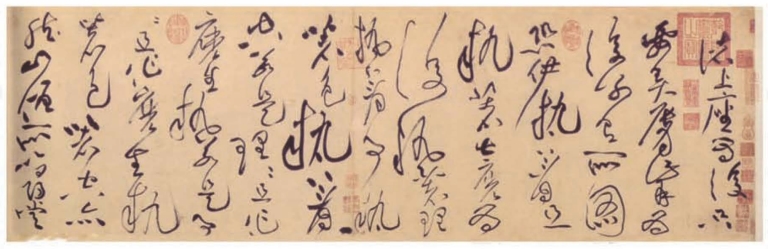 諸上座為復只
要弄唇觜為
復別有所圖
恐伊執著且
執著甚麼為
復執著理
執著事執
著色執著
空若是理〻且作
麼生執若是事
〻且作麼生執
著色著空亦
然山僧所以尋常